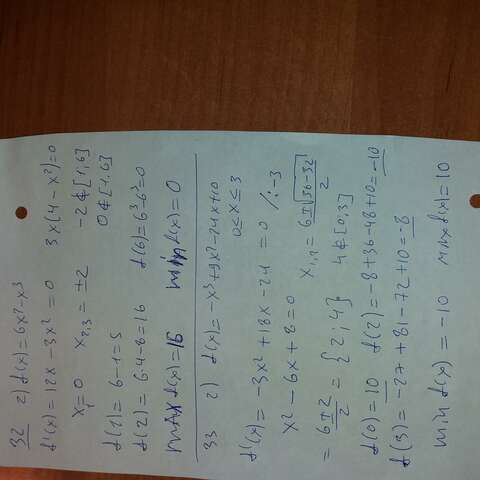 32 2) f(x) = 6x² - x³
f'(x) = 12x - 3x² = 0 3x(4 - x²) = 0
x₁ = 0 x₂,₃ = ±2 -2 ∉ [1,6]
0 ∉ [1,6]
f(1) = 6 - 1 = 5
f(2) = 6·4 - 8 = 16 f(6) = 6³ - 6³ = 0
max f(x) = 16 min f(x) = 0
33 2) f(x) = -x³ + 9x² - 24x + 10
0 ≤ x ≤ 3
f'(x) = -3x² + 18x - 24 = 0 /: -3
x² - 6x + 8 = 0 x₁,₂ = (6 ± √(36 - 32))/2
= (6 ± 2)/2 = {2; 4} 4 ∉ [0,3]
f(0) = 10 f(2) = -8 + 36 - 48 + 10 = -10
f(3) = -27 + 81 - 72 + 10 = -8
min f(x) = -10 max f(x) = 10